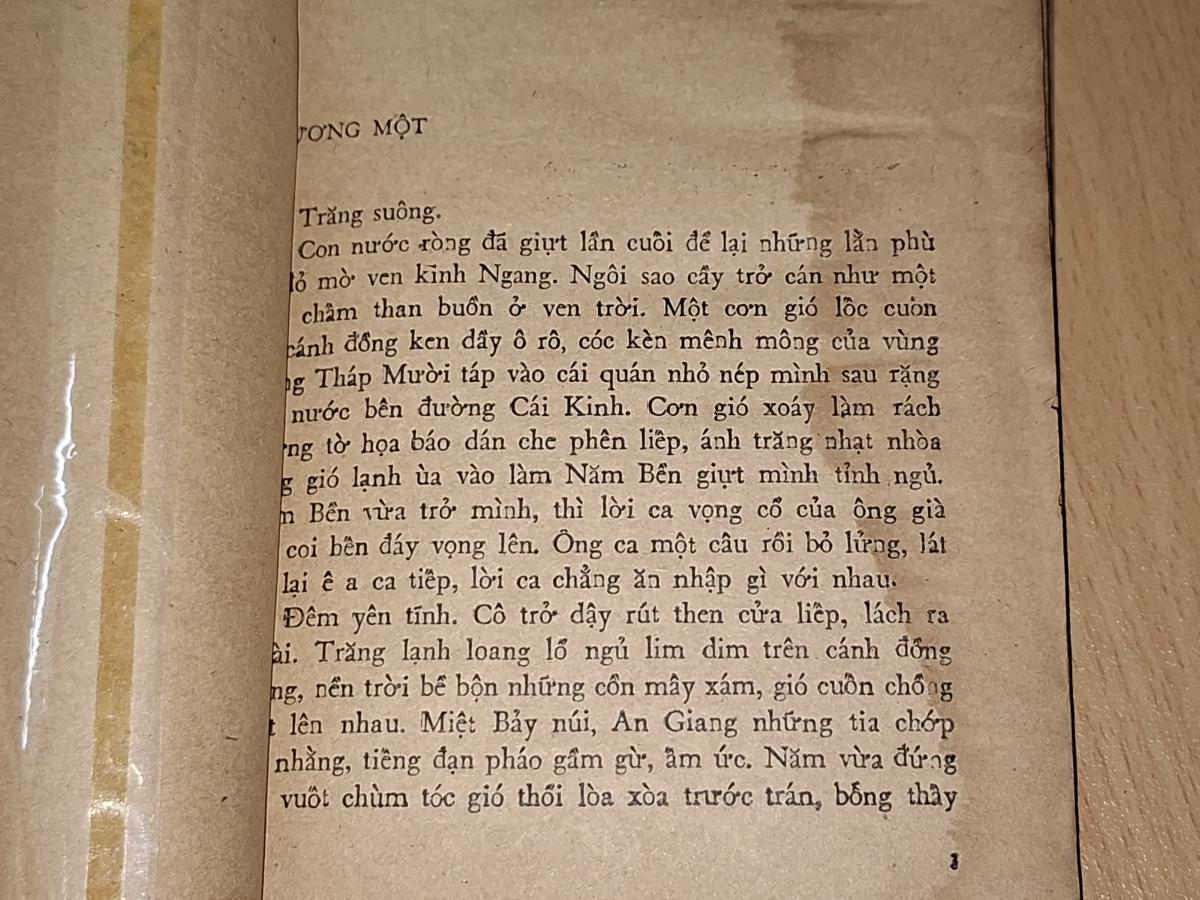 ƯƠNG MỘT
Trăng suông.
Con nước ròng đã giựt lần cuối để lại những lằn phù
mờ ven kinh Ngang. Ngôi sao cầy trở cán như một
chấm than buồn ở ven trời. Một cơn gió lốc cuốn
cánh đồng ken dầy ô rô, cóc kèn mênh mông của vùng
Tháp Mười táp vào cái quán nhỏ nép mình sau rặng
nước bên đường Cái Kinh. Cơn gió xoáy làm rách
tờ họa báo dán che phên liếp, ánh trăng nhạt nhòa
gió lạnh ùa vào làm Năm Bền giựt mình tỉnh ngủ.
Bền vừa trở mình, thì lời ca vọng cổ của ông già
coi bến đáy vọng lên. Ông ca một câu rồi bỏ lửng, lát
lại ê a ca tiếp, lời ca chẳng ăn nhập gì với nhau.
Đêm yên tĩnh. Cô trở dậy rút then cửa liếp, lách ra
Trăng lạnh loang lổ ngủ lim dim trên cánh đồng
nền trời bề bộn những cồn mây xám, gió cuồn chồng
lên nhau. Miệt Bảy núi, An Giang những tia chớp
nhằng, tiếng đạn pháo gầm gừ, ầm ức. Năm vừa đứng
vuốt chùm tóc gió thổi lòa xòa trước trán, bỗng thấy